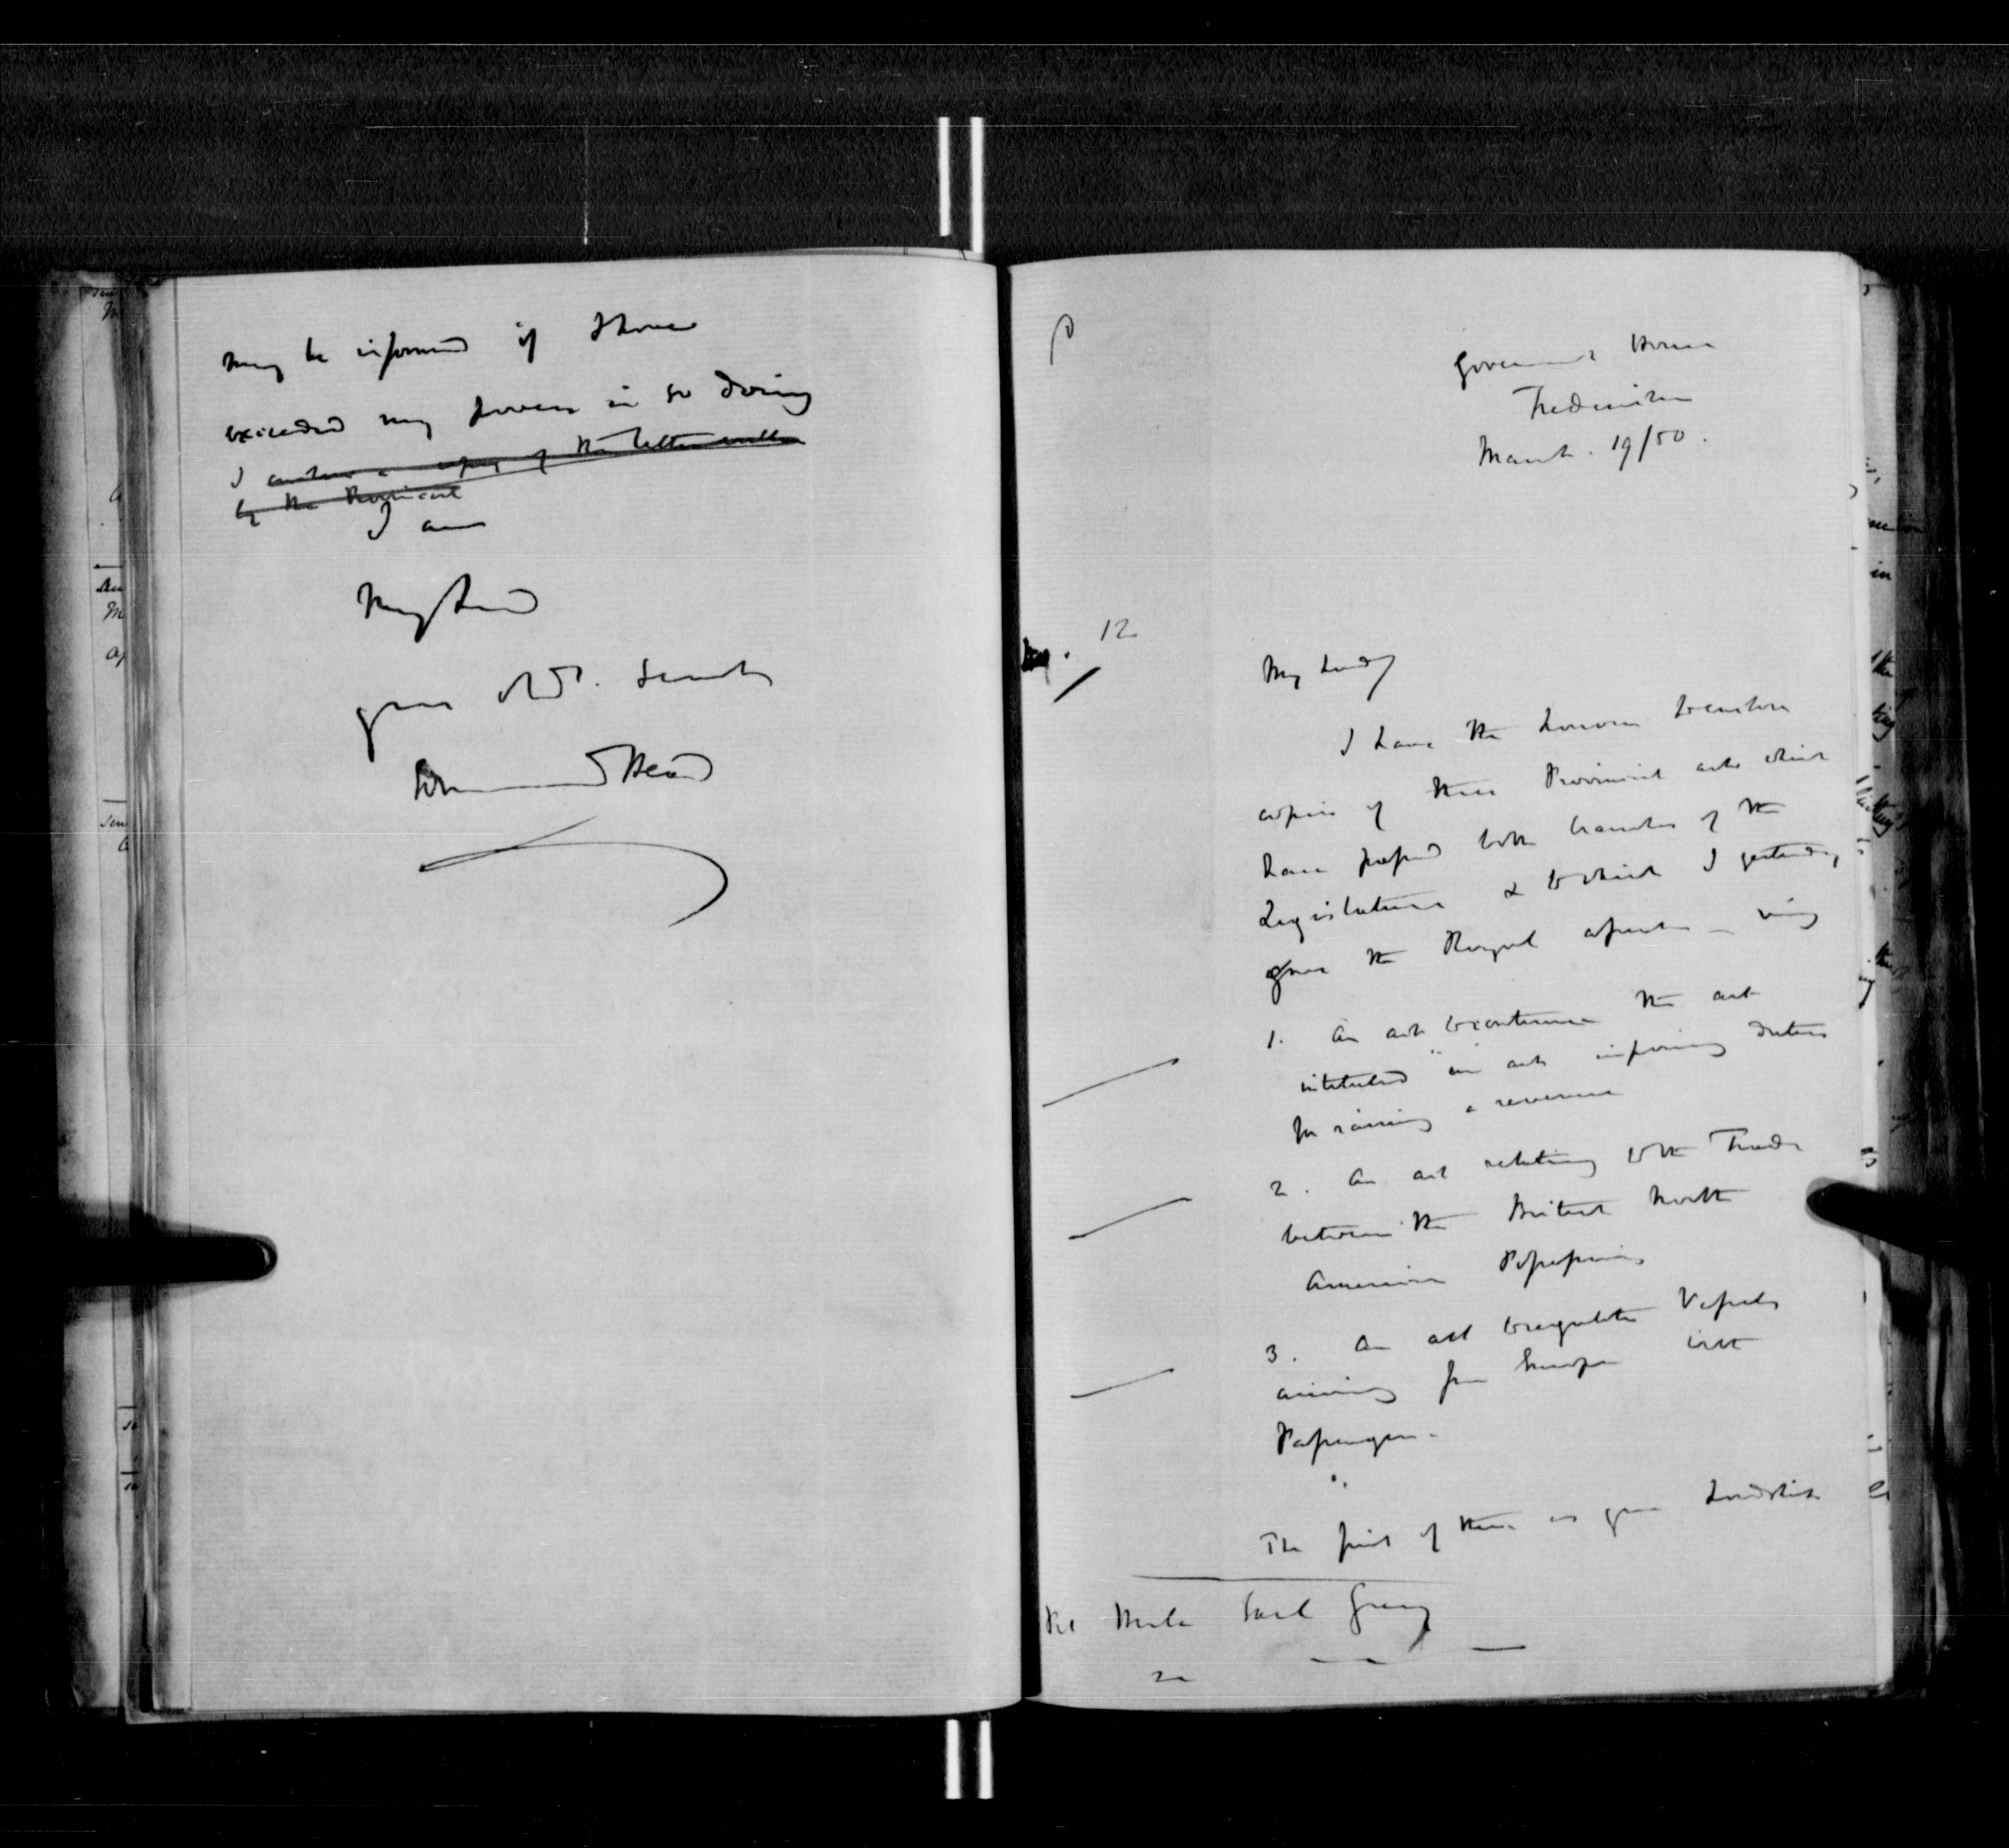 may be informed if I have
exceeded my powers in so doing
I enclose a copy of the letter written
by the Provincial
I am
My Lord
your obdt. Servt
Edmund Head
Government House
Fredericton
March. 19/50.
12
My Lord,
I have the honour to enclose
copies of three Provincial acts which
have passed both branches of the
Legislature & to which I yesterday
gave the Royal assent – viz
1. An act to continue the act
intituled "an act imposing duties
for raising a revenue
2. An act relating to the Trade
between the British North
American Possessions
3. An act to regulate Vessels
arriving from Europe with
Passengers.
The first of these as your Lordship
The Earl Grey